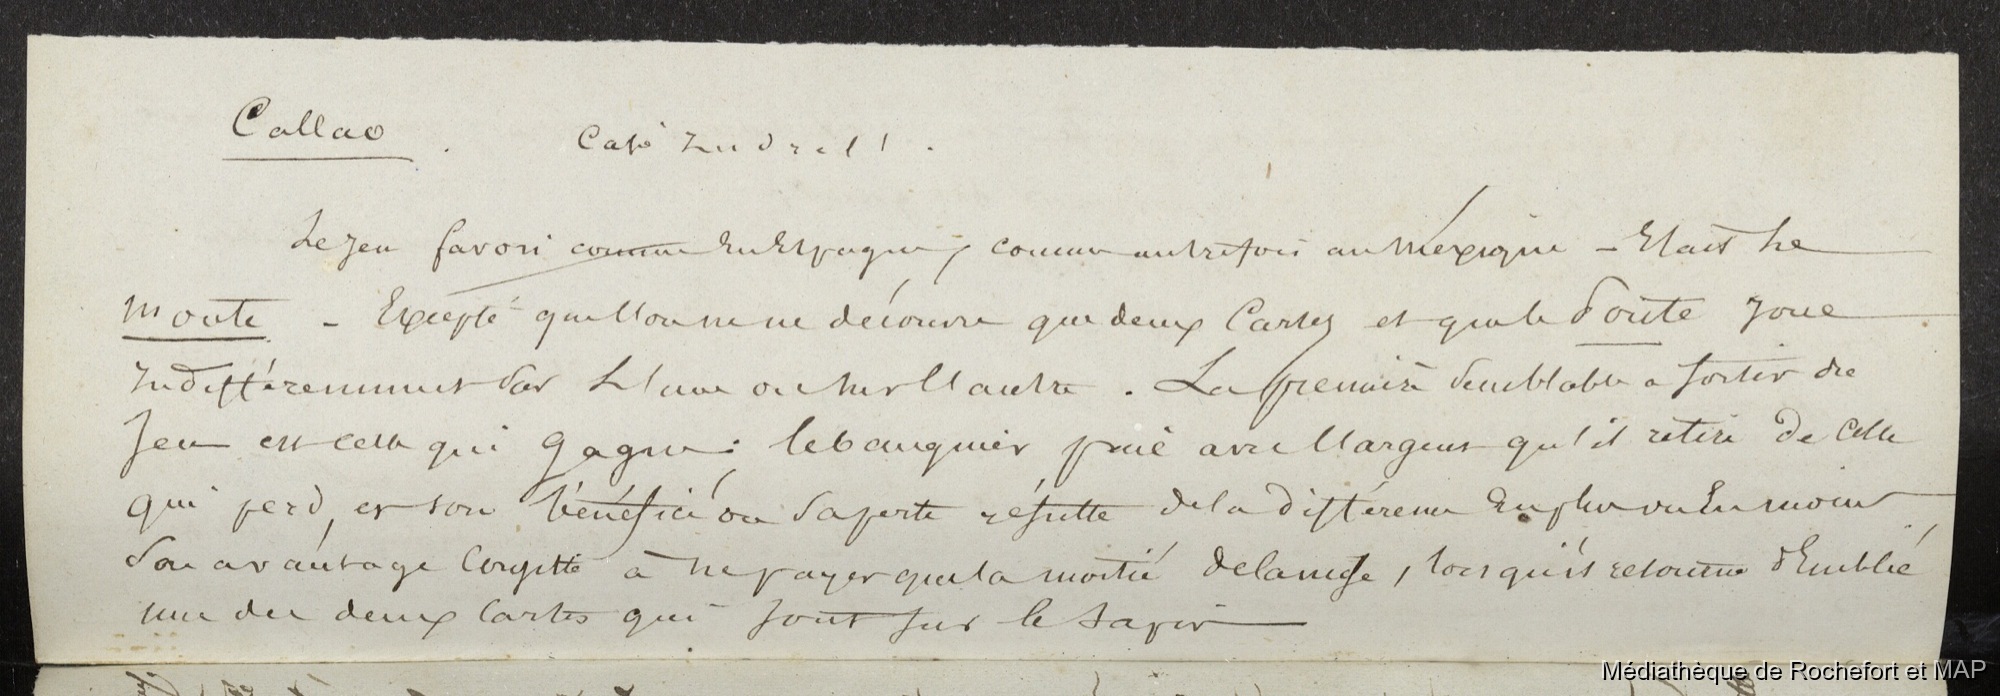 Callao. Café
Le jeu favori comme en Espagne, comme autrefois au Mexique — Etait Le
Monte — Excepté que l'on ne découvre que deux Cartes et que le Ponte joue
Indifféremment sur L'une ou sur l'autre. La première semblable à sortir du
jeu est celle qui gagne: le banquier paie avec l'argent qu'il retire de celle
qui perd, et son bénéfice ou sa perte résulte de la différence En plus ou En moins
Son avantage Consiste à ne payer que la moitié de la mise, lorsqu'il retourne d'Emblée
une des deux Cartes qui sont sur le tapis
Médiathèque de Rochefort et MAP